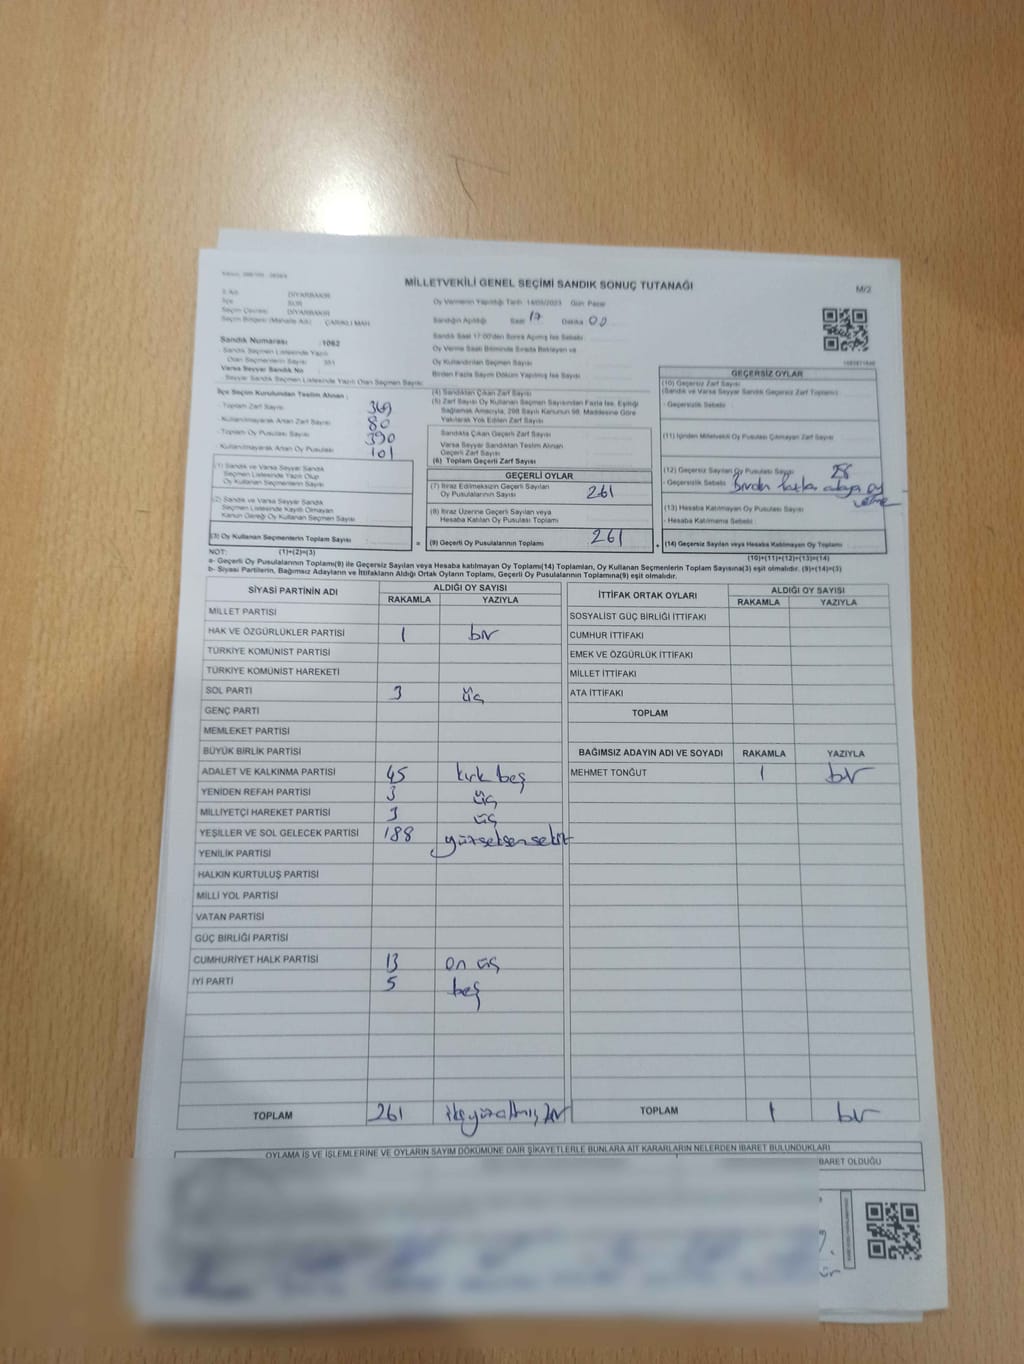 MİLLETVEKİLİ GENEL SEÇİMİ SANDIK SONUÇ TUTANAĞI
M/2
DİYARBAKIR
SUR
DİYARBAKIR
Seçim Bölgesi (Mahalle Adı) : ÇARIKLI MAH
Sandık Numarası : 1062
Sandık Seçmen Listesinde Yazılı
Olan Seçmenlerin Sayısı : 351
Varsa Seyyar Sandık No
Seyyar Sandık Seçmen Listesinde Yazılı Olan Seçmen Sayısı:
Oy Vermenin Yapıldığı Tarih : 14/05/2023 Gün: Pazar
Sandığın Açıldığı Saat 17 Dakika 00
Sandık Saat 17:00'den Sonra Açılmış İse Sebebi
Oy Verme Saati Bitiminde Sırada Bekleyen ve
Oy Kullandırılan Seçmen Sayısı
Birden Fazla Sayım Döküm Yapılmış İse Sayısı
İlçe Seçim Kurulundan Teslim Alınan ;
- Toplam Zarf Sayısı 369
- Kullanılmayarak Artan Zarf Sayısı 80
- Toplam Oy Pusulası Sayısı 390
- Kullanılmayarak Artan Oy Pusulası 101
(1) Sandık ve Varsa Seyyar Sandık
Seçmen Listesinde Yazılı Olup
Oy Kullanan Seçmenlerin Sayısı
(2) Sandık ve Varsa Seyyar Sandık
Seçmen Listesinde Kayıtlı Olmayan
Kanun Gereği Oy Kullanan Seçmen Sayısı
(3) Oy Kullanan Seçmenlerin Toplam Sayısı
(4) Sandıktan Çıkan Zarf Sayısı
(5) Zarf Sayısı Oy Kullanan Seçmen Sayısından Fazla İse, Eşitliği
Sağlamak Amacıyla, 298 Sayılı Kanunun 98. Maddesine Göre
Yakılarak Yok Edilen Zarf Sayısı
Sandıkta Çıkan Geçerli Zarf Sayısı
Varsa Seyyar Sandıktan Teslim Alınan
Geçerli Zarf Sayısı
(6) Toplam Geçerli Zarf Sayısı
GEÇERLİ OYLAR
(7) İtiraz Edilmeksizin Geçerli Sayılan
Oy Pusulalarının Sayısı 261
(8) İtiraz Üzerine Geçerli Sayılan veya
Hesaba Katılan Oy Pusulası Toplamı
= (9) Geçerli Oy Pusulalarının Toplamı 261
GEÇERSİZ OYLAR
(10) Geçersiz Zarf Sayısı
(Sandık ve Varsa Seyyar Sandık Geçersiz Zarf Toplamı)
- Geçersizlik Sebebi
(11) İçinden Milletvekili Oy Pusulası Çıkmayan Zarf Sayısı
(12) Geçersiz Sayılan Oy Pusulası Sayısı 28
- Geçersizlik Sebebi Birden fazla adaya oy
verme
(13) Hesaba Katılmayan Oy Pusulası Sayısı
- Hesaba Katılmama Sebebi
+ (14) Geçersiz Sayılan veya Hesaba Katılmayan Oy Toplamı
NOT: (1)+(2)=(3)
(10)+(11)+(12)+(13)=(14)
a- Geçerli Oy Pusulalarının Toplamı(9) ile Geçersiz Sayılan veya Hesaba katılmayan Oy Toplamı(14) Toplamları, Oy Kullanan Seçmenlerin Toplam Sayısına(3) eşit olmalıdır. (9)+(14)=(3)
b- Siyasi Partilerin, Bağımsız Adayların ve İttifakların Aldığı Ortak Oyların Toplamı, Geçerli Oy Pusulalarının Toplamına(9) eşit olmalıdır.
SİYASİ PARTİNİN ADI ALDIĞI OY SAYISI
RAKAMLA YAZIYLA
MİLLET PARTİSİ
HAK VE ÖZGÜRLÜKLER PARTİSİ 1 bir
TÜRKİYE KOMÜNİST PARTİSİ
TÜRKİYE KOMÜNİST HAREKETİ
SOL PARTİ 3 üç
GENÇ PARTİ
MEMLEKET PARTİSİ
BÜYÜK BİRLİK PARTİSİ
ADALET VE KALKINMA PARTİSİ 45 kırk beş
YENİDEN REFAH PARTİSİ 3 üç
MİLLİYETÇİ HAREKET PARTİSİ 3 üç
YEŞİLLER VE SOL GELECEK PARTİSİ 188 yüzseksensekiz
YENİLİK PARTİSİ
HALKIN KURTULUŞ PARTİSİ
MİLLİ YOL PARTİSİ
VATAN PARTİSİ
GÜÇ BİRLİĞİ PARTİSİ
CUMHURİYET HALK PARTİSİ 13 on üç
İYİ PARTİ 5 beş
TOPLAM 261 ikiyüzaltmışbir
İTTİFAK ORTAK OYLARI ALDIĞI OY SAYISI
RAKAMLA YAZIYLA
SOSYALİST GÜÇ BİRLİĞİ İTTİFAKI
CUMHUR İTTİFAKI
EMEK VE ÖZGÜRLÜK İTTİFAKI
MİLLET İTTİFAKI
ATA İTTİFAKI
TOPLAM
BAĞIMSIZ ADAYIN ADI VE SOYADI RAKAMLA YAZIYLA
MEHMET TONĞUT 1 bir
TOPLAM 1 bir
OYLAMA İŞ VE İŞLEMLERİNE VE OYLARIN SAYIM DÖKÜMÜNE DAİR ŞİKAYETLERLE BUNLARA AİT KARARLARIN NELERDEN İBARET BULUNDUKLARI
BARET OLDUĞU